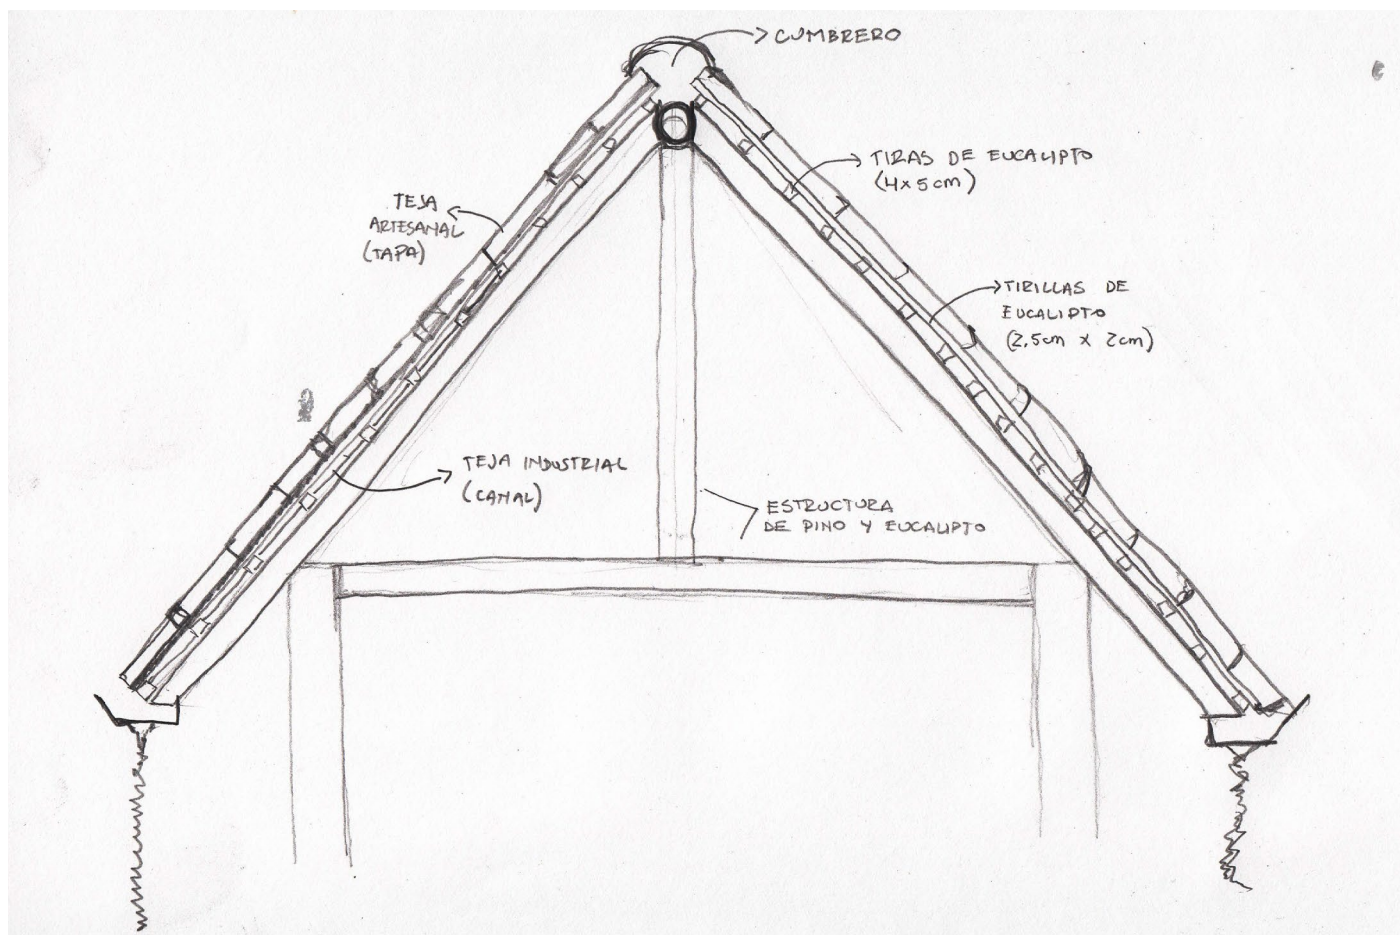 CUMBRERO
TIRAS DE EUCALIPTO
(4x5cm)
TEJA
ARTESANAL
(TAPA)
TIRILLAS DE
EUCALIPTO
(2,5cm x 2cm)
TEJA INDUSTRIAL
(CANAL)
ESTRUCTURA
DE PINO Y EUCALIPTO